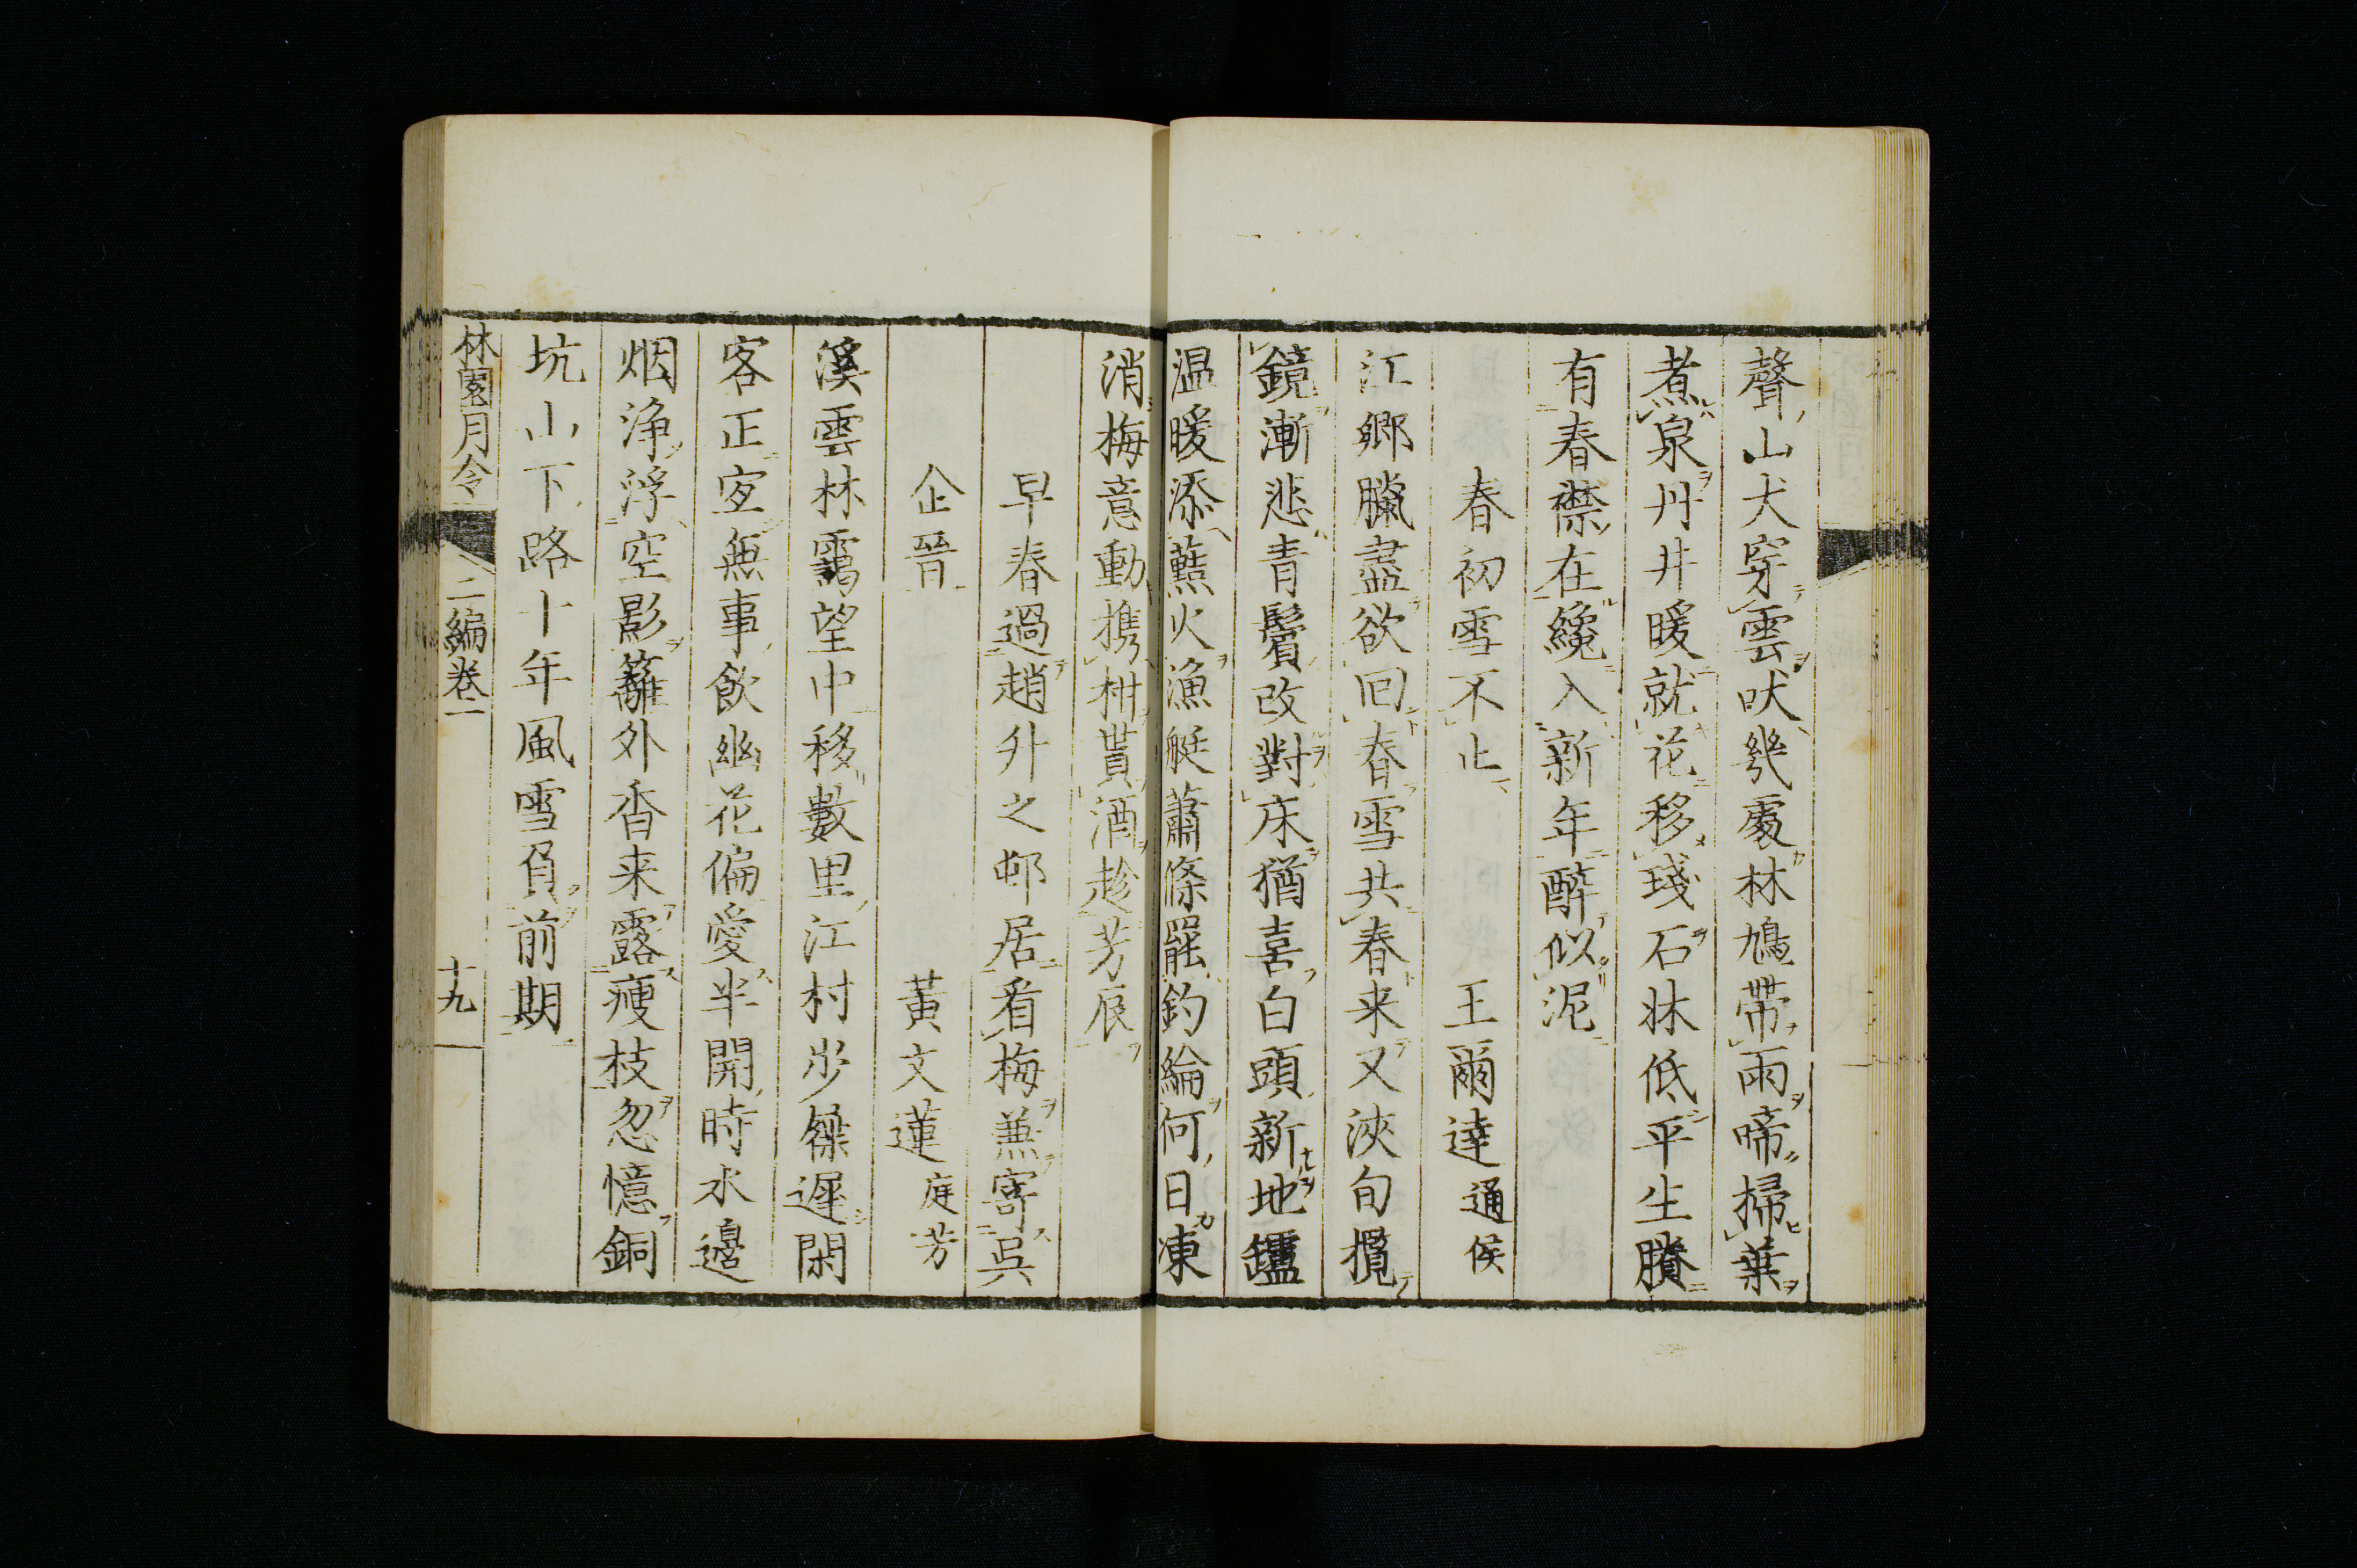 聲山犬穿雲吠幾處林鳩帶雨啼掃葉
煮泉丹井暖就花移琖石牀低平生賸
有春襟在纔入新年醉似泥
春初雪不止 王爾達通侯
江鄉臘盡欲回春雪共春来又浹旬攬
鏡漸悲青鬢改對床猶喜白頭新地罏
温暖添蘓火漁艇蕭條罷釣綸何日凍
消梅意動携柑貰酒趁芳辰
早春過趙升之邨居看梅兼寄吳
企晉 黃文蓮庭芳
溪雲林靄望中移數里江村步屧遲閑
客正宐無事飲幽花偏愛半開時水邊
烟浄浮空影籬外香来露瘦枝忽憶銅
坑山下路十年風雪負前期
林園月令 二編卷一 十九